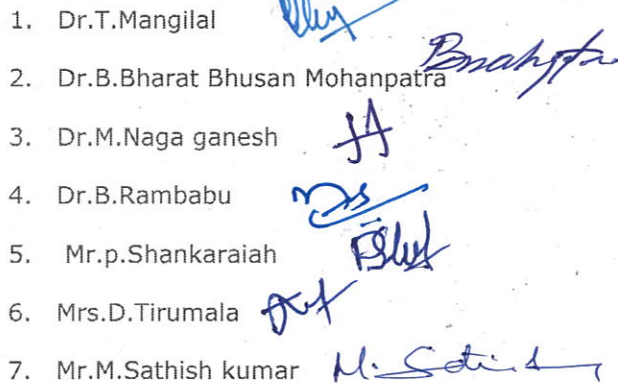 1. Dr.T.Mangilal
2. Dr.B.Bharat Bhusan Mohanpatra
3. Dr.M.Naga ganesh
4. Dr.B.Rambabu
5. Mr.p.Shankaraiah
6. Mrs.D.Tirumala
7. Mr.M.Sathish kumar